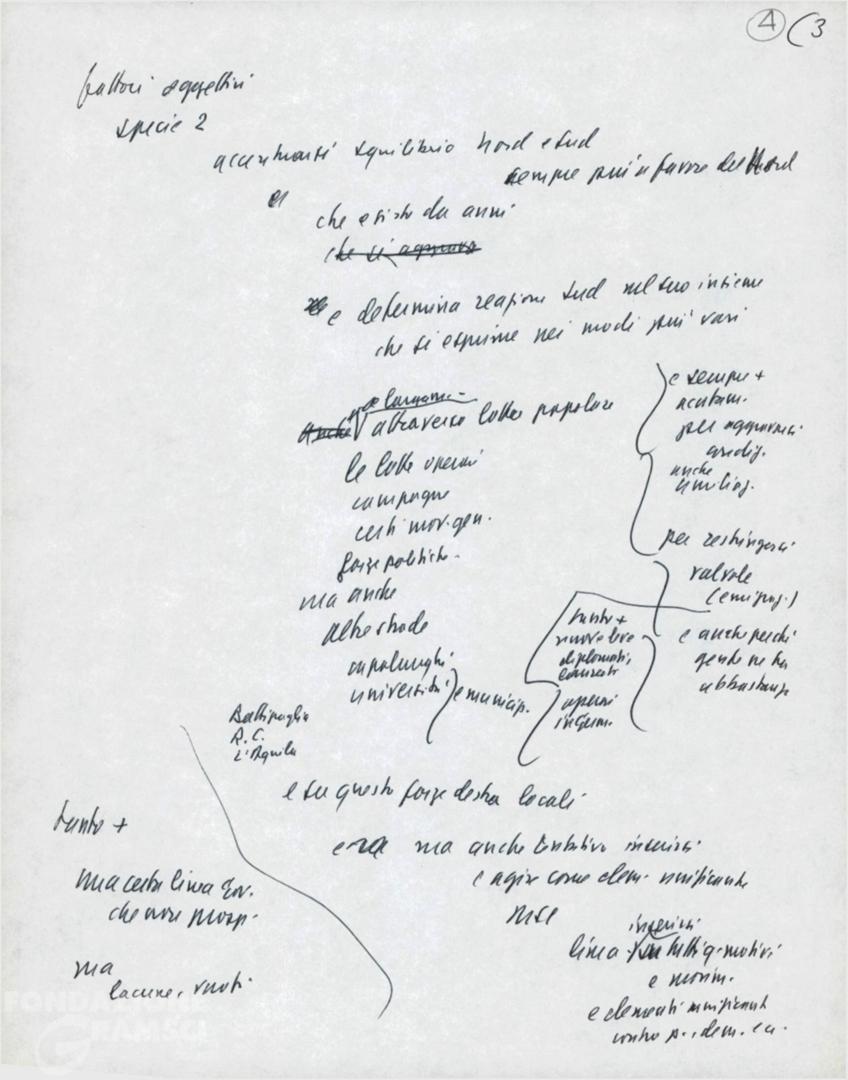 4 (3
fattori soggettivi
specie 2
accentuarsi squilibrio Nord e Sud
sempre più a favore del Nord
che esiste da anni
che si aggrava
e determina reazione Sud nel suo insieme
che si esprime nei modi più vari
anche
attraverso lotte popolare
le lotte operai
campagne
certi mov. gen.
forze politiche
ma anche
altre strade
capoluoghi
università
e municip.
Battipaglia
R.C.
L'Aquila
e sempre +
acutam.
per aggravarsi
anche
per restringersi
valvole
(emigraz.)
e anche perché
gente ne ha
abbastanza
tanto +
nuove leve
diplomati,
laureati
operai
insegn.
e su questo forze destra locali
ma anche tentativo inserirsi
e agire come elem. unificante
MSI
inserirsi
linea su tutti q. motivi
e movim.
e elementi unificanti
contro p. dem. ecc.
tanto +
una certa linea gov.
che
ma
lacune, vuoti
FONDAZIONE
GRAMSCI